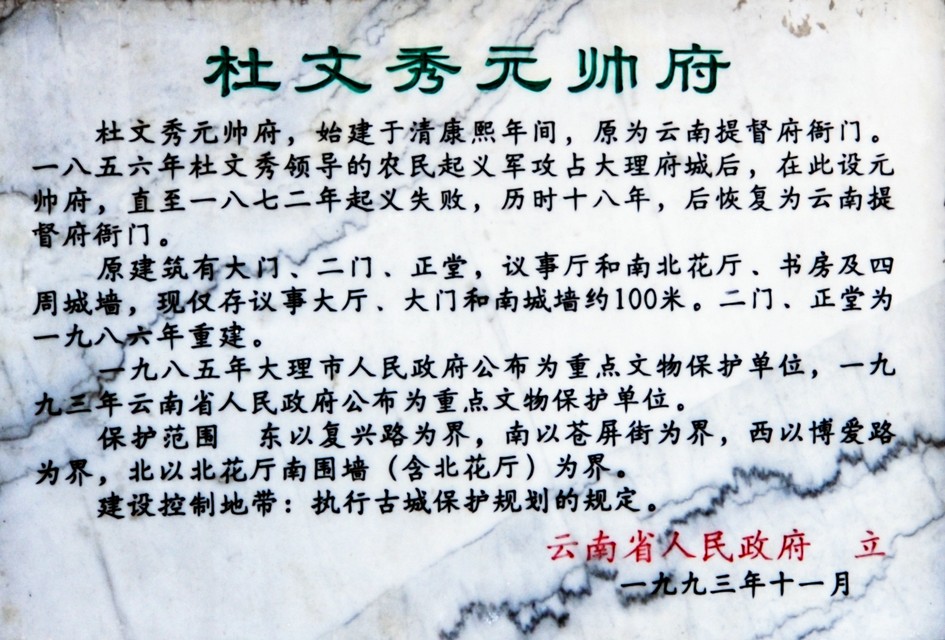 杜文秀元帅府
杜文秀元帅府，始建于清康熙年间，原为云南提督府衙门。
一八五六年杜文秀领导的农民起义军攻占大理府城后，在此设元
帅府，直至一八七二年起义失败，历时十八年，后恢复为云南提
督府衙门。
原建筑有大门、二门、正堂，议事厅和南北花厅、书房及四
周城墙，现仅存议事大厅、大门和南城墙约100米。二门、正堂为
一九八六年重建。
一九八五年大理市人民政府公布为重点文物保护单位，一九
九三年云南省人民政府公布为重点文物保护单位。
保护范围　东以复兴路为界，南以苍屏街为界，西以博爱路
为界，北以北花厅南围墙（含北花厅）为界。
建设控制地带：执行古城保护规划的规定。
云南省人民政府　立
一九九三年十一月